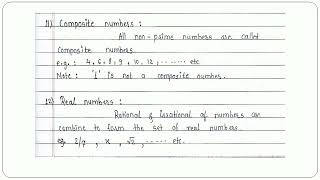 11) Composite numbers :
All non-prime numbers are called
Composite numbers.
e.g. : 4, 6, 8, 9, 10, 12, ....... etc
Note : '1' is not a composite number.
12) Real numbers :
Rational & irrational of numbers can
combine to form the set of real numbers.
eg. 2/7 , π , √2 , ..... etc.